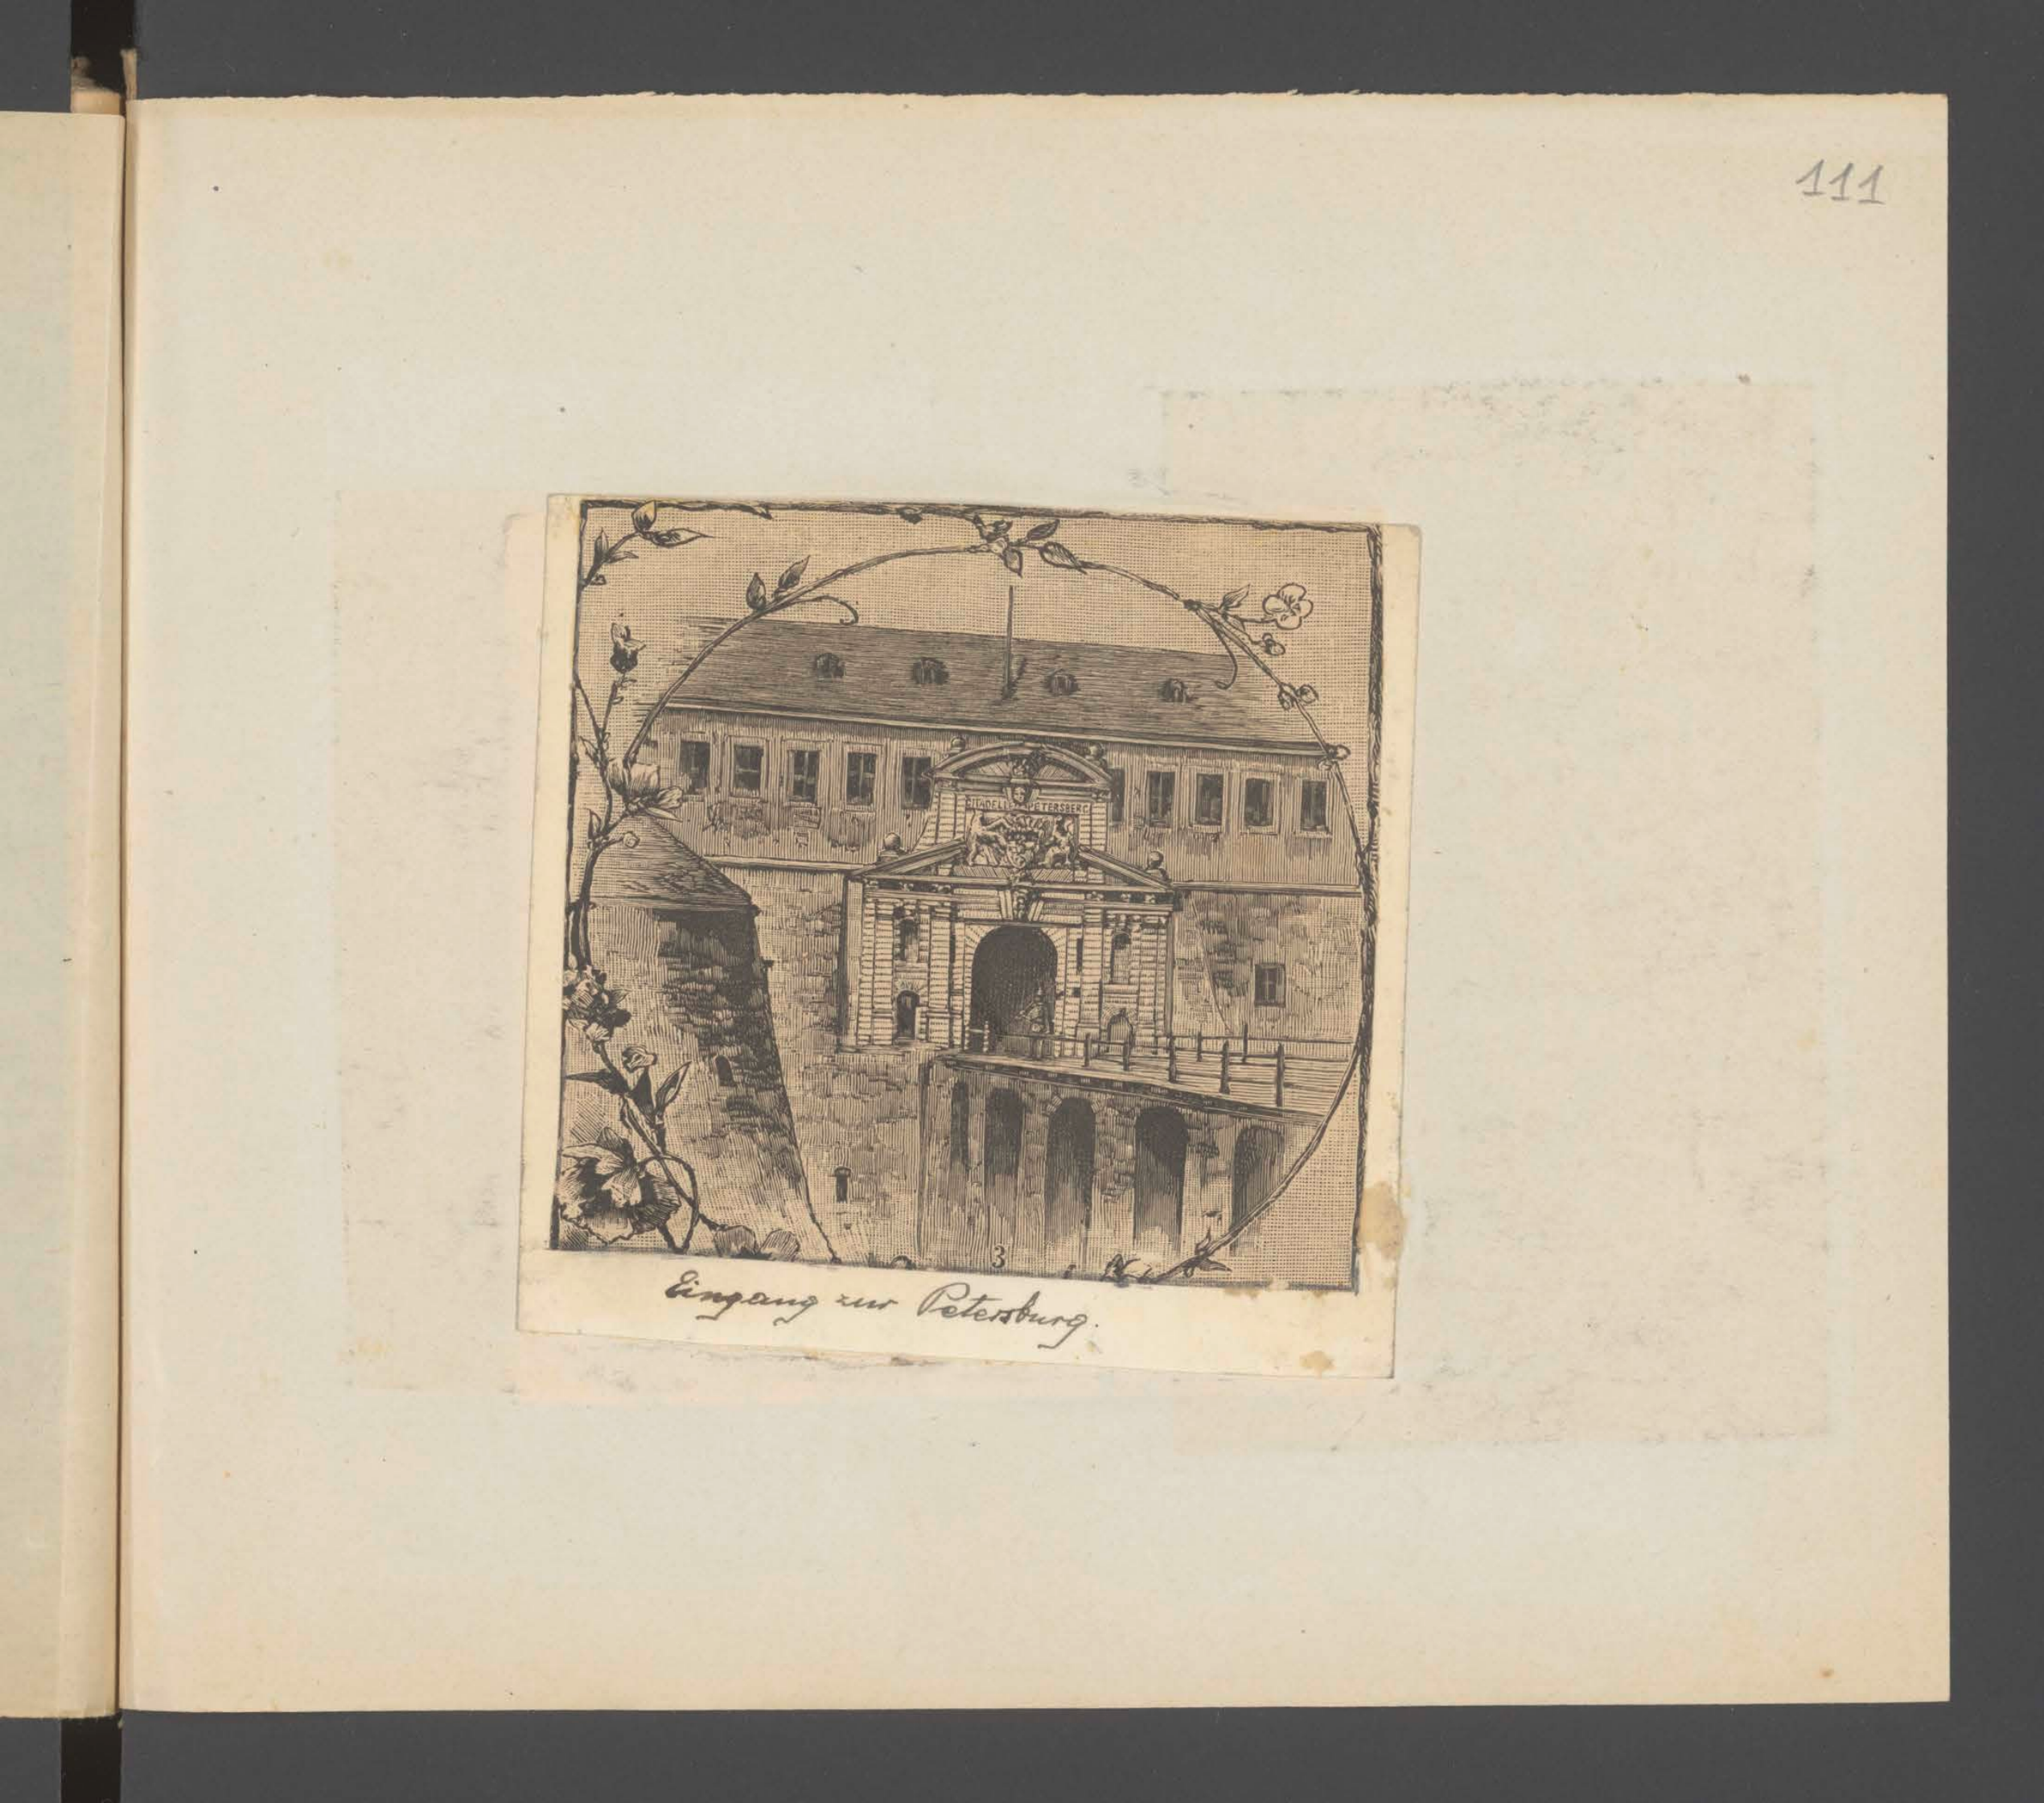 111
CITADELLE PETERSBERG
3
Eingang zur Petersburg.